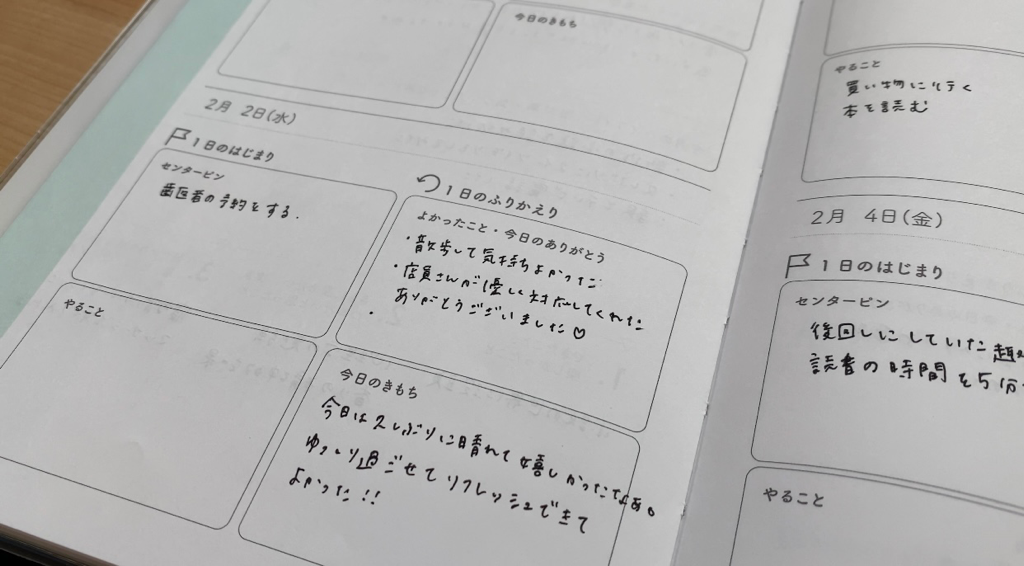 今日のきもち
2月 2日(水)
1日のはじまり
センターピン
歯医者の予約をする.
やること
1日のふりかえり
よかったこと・今日のありがとう
・散歩して気持ちよかった
・店員さんが優しく対応してくれた
ありがとうございました♡
・
今日のきもち
今日は久しぶりに晴れて嬉しかったなぁ。
ゆっくり過ごせてリフレッシュできて
よかった!!
やること
買い物に行く
本を読む
2月 4日(金)
1日のはじまり
センターピン
後回しにしていた
読書の時間を5分
やること